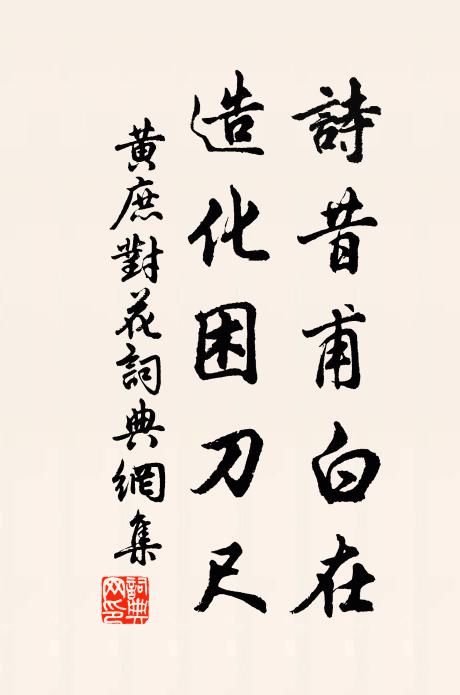 詩昔甫白在
造化困刀尺
黃庶對花詞典網集
詞典网印